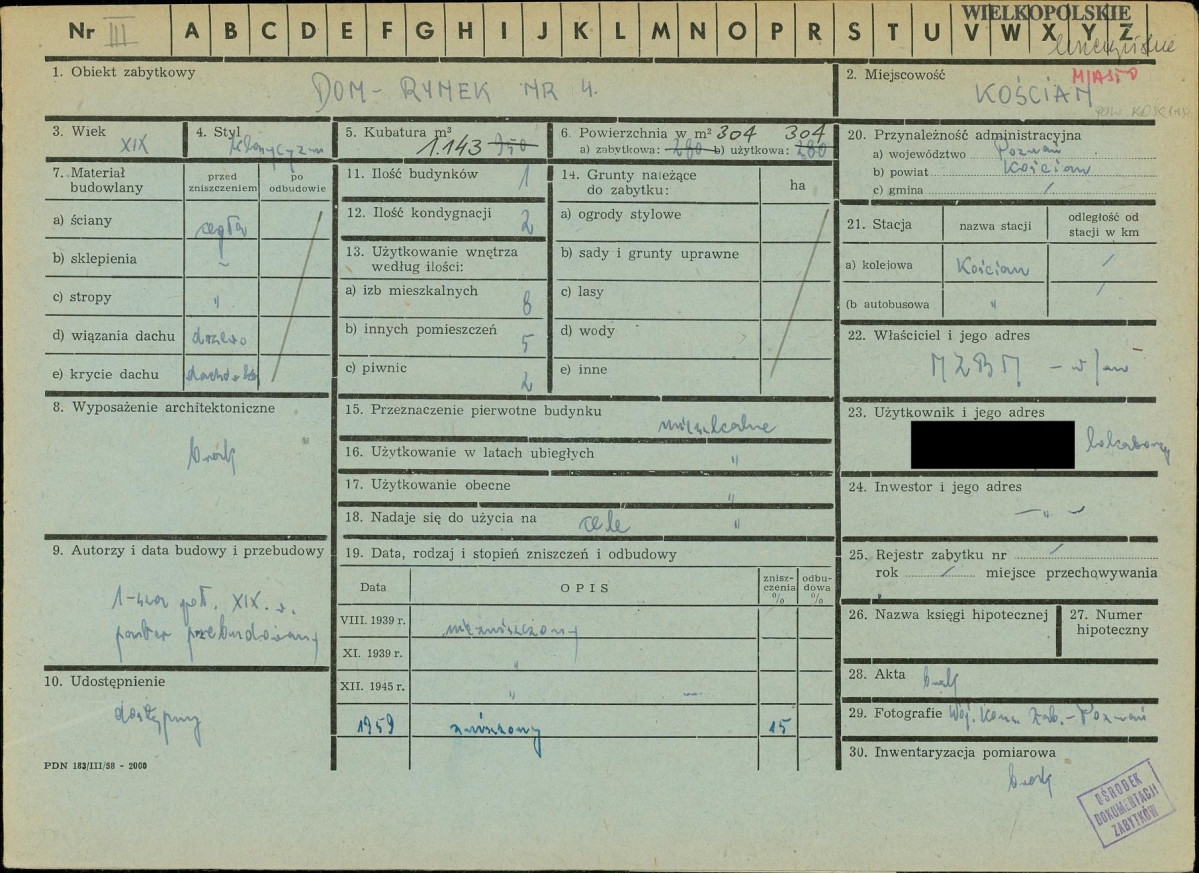 Nr III A B C D E F G H I J K L M N O P R S T U V W X Y Z
WIELKOPOLSKIE
1. Obiekt zabytkowy
DOM - RYNEK NR 4.
2. Miejscowość
MIASTO
KOŚCIAN
POW. KOŚCIAN
3. Wiek
XIX
4. Styl
klasycyzm
5. Kubatura m³
1.143 950
6. Powierzchnia w m² 304 304
a) zabytkowa: 280 b) użytkowa: 280
7. Materiał budowlany
przed zniszczeniem
po odbudowie
a) ściany cegła
b) sklepienia –
c) stropy "
d) wiązania dachu drzewo
e) krycie dachu dachówka
8. Wyposażenie architektoniczne
brak
9. Autorzy i data budowy i przebudowy
1-sza poł. XIX w.
parter przebudowany
10. Udostępnienie
dostępny
PDN 183/III/58 - 2000
11. Ilość budynków 1
12. Ilość kondygnacji 2
13. Użytkowanie wnętrza
według ilości:
a) izb mieszkalnych 8
b) innych pomieszczeń 5
c) piwnic 2
14. Grunty należące
do zabytku:
ha
a) ogrody stylowe
b) sady i grunty uprawne
c) lasy
d) wody
e) inne
15. Przeznaczenie pierwotne budynku
mieszkalne
16. Użytkowanie w latach ubiegłych "
17. Użytkowanie obecne "
18. Nadaje się do użycia na cele "
19. Data, rodzaj i stopień zniszczeń i odbudowy
Data
OPIS
znisz-
czenia
%
odbu-
dowa
%
VIII. 1939 r. niezniszczony
XI. 1939 r. "
XII. 1945 r. " —
1959 zniszczony 15
20. Przynależność administracyjna
a) województwo Poznań
b) powiat Kościan
c) gmina /
21. Stacja
nazwa stacji
odległość od
stacji w km
a) kolejowa Kościan /
(b autobusowa " /
22. Właściciel i jego adres
MZBM - w/m
23. Użytkownik i jego adres
lokatorzy
24. Inwestor i jego adres
— " —
25. Rejestr zabytku nr /
rok / miejsce przechowywania
26. Nazwa księgi hipotecznej
27. Numer
hipoteczny
28. Akta brak
29. Fotografie Woj. Kons. Zab. - Poznań
30. Inwentaryzacja pomiarowa
brak
OŚRODEK
DOKUMENTACJI
ZABYTKÓW